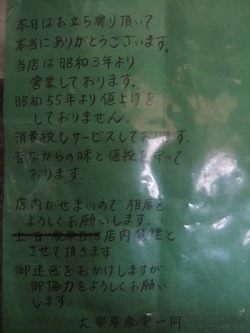 本日はお立ち寄り頂いて
本当にありがとうございます。
当店は昭和3年より
営業しております。
昭和55年より値上げを
しておりません。
消費税もサービスしております。
昔ながらの味と値段を守って
おります。
店内がせまいので相席を
よろしくお願いします。
店内禁煙と
させて頂きます
御迷惑をおかけしますが
御協力をよろしくお願い
します
一同